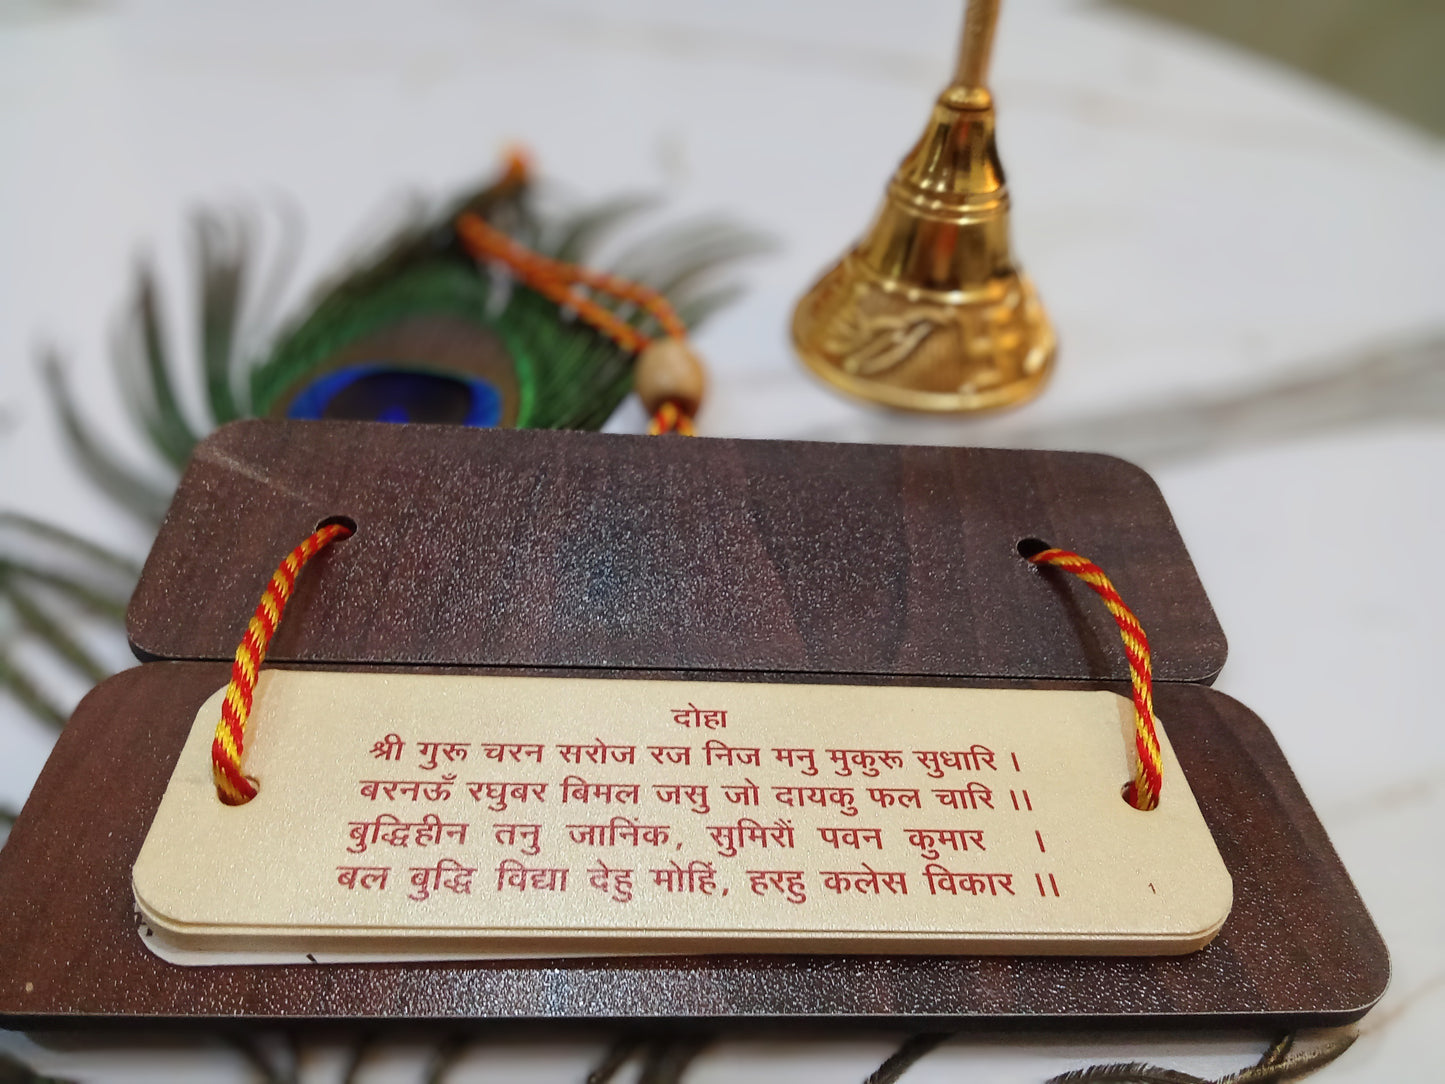 दोहा
श्री गुरू चरन सरोज रज निज मनु मुकुरू सुधारि ।
बरनऊँ रघुबर बिमल जसु जो दायकु फल चारि ।।
बुद्धिहीन तनु जानिंक, सुमिरौं पवन कुमार ।
बल बुद्धि विद्या देहु मोहिं, हरहु कलेस विकार ।।
1